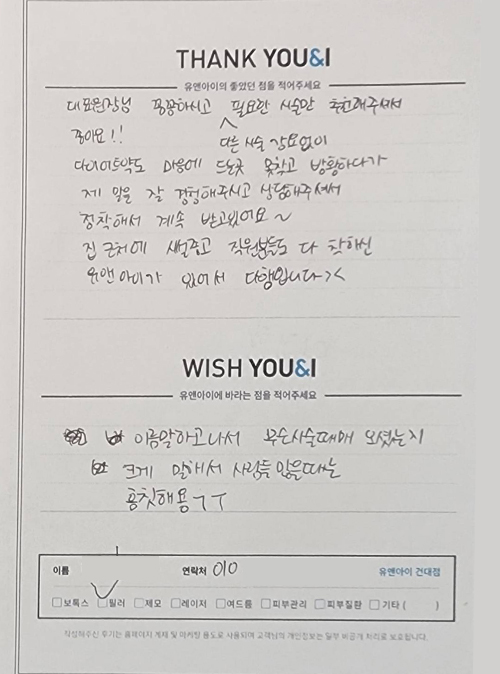 THANK YOU&I
유앤아이의 좋았던 점을 적어주세요
대표원장님 꼼꼼하시고 필요한 시술만 추천해주셔서
좋아요!! 다른 시술 강요없이
다이어트약도 마음에 드는곳 못찾고 방황하다가
제 말을 잘 경청해주시고 상담해주셔서
정착해서 계속 받고있어요~
집 근처에 새로생겼고 직원분들도 다 착하신
유앤아이가 있어서 다행입니다><
WISH YOU&I
유앤아이에 바라는 점을 적어주세요
이름말하고나서 무슨시술때매 오셨는지
크게 말해서 사람들 많을때는
흠칫해용ㅜㅜ
이름 연락처 010 유앤아이 건대점
보톡스 필러 제모 레이저 여드름 피부관리 피부질환 기타 ( )
작성해주신 후기는 홈페이지 게재 및 마케팅 용도로 사용되며 고객님의 개인정보는 일부 비공개 처리로 보호됩니다.